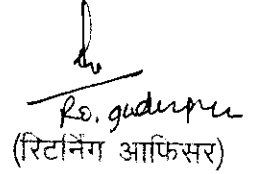 Ro. gadarpur
(रिटर्निंग आफिसर)